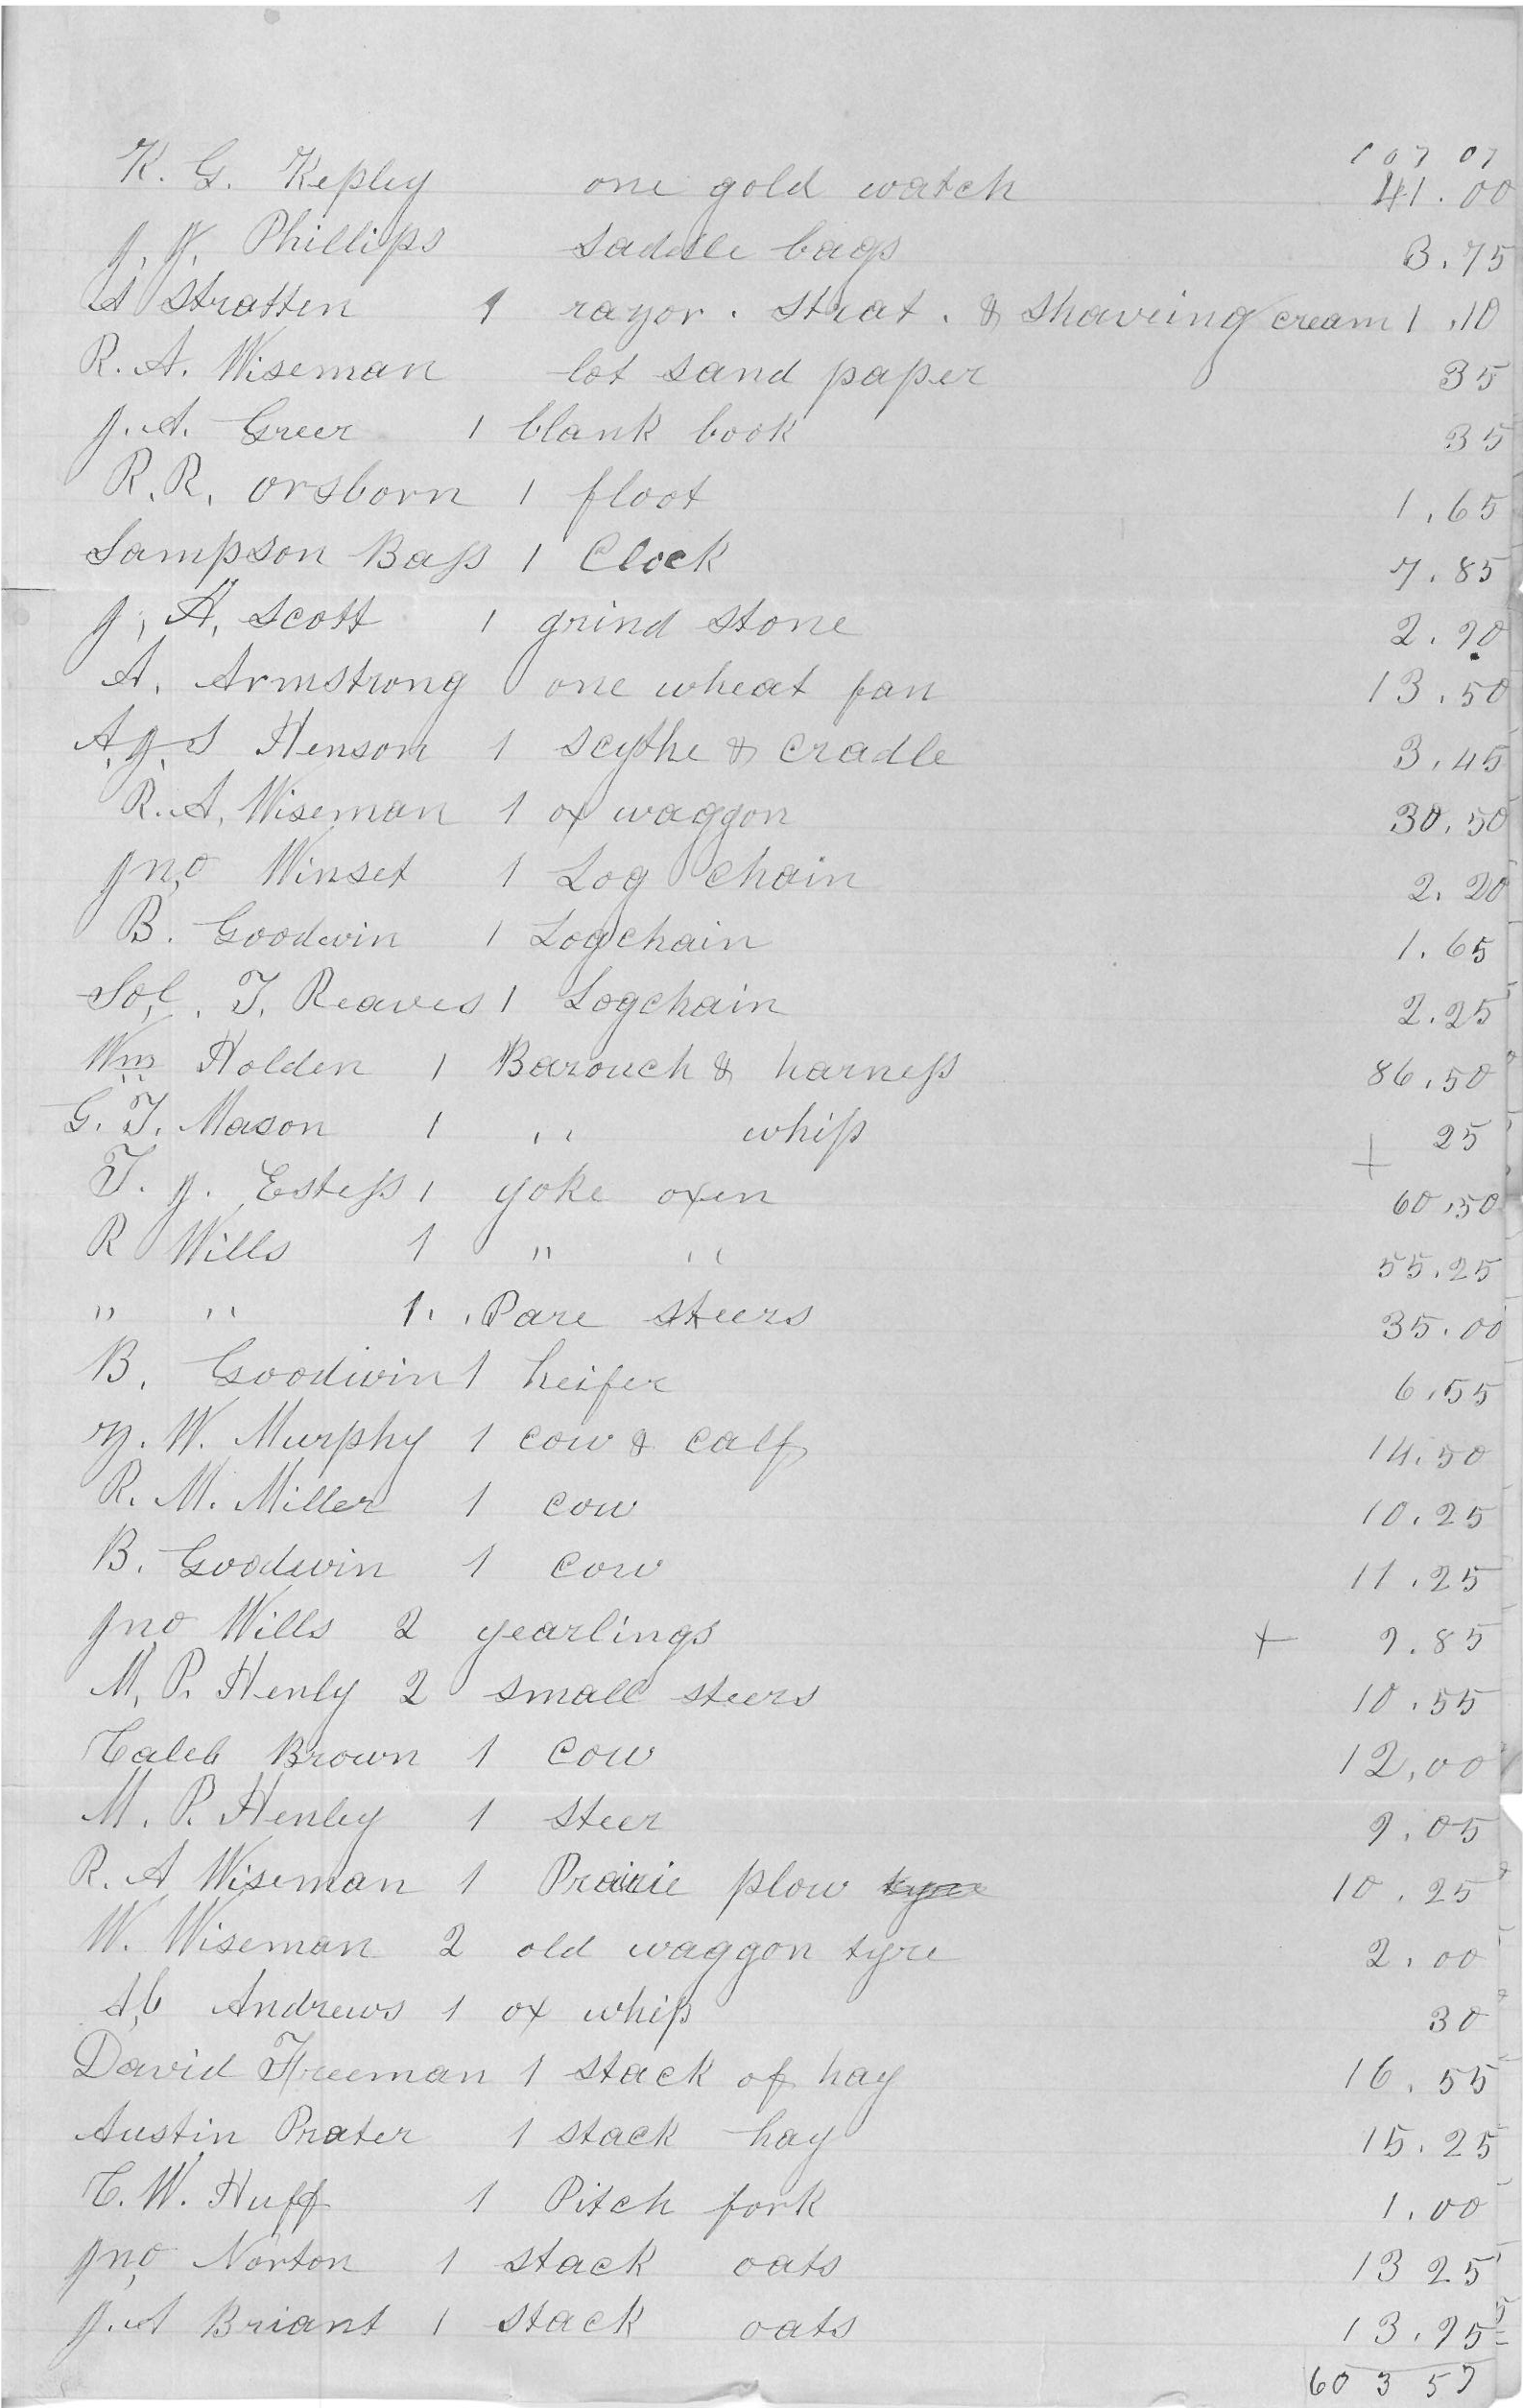 107 07
K. G. Kepley one gold watch 41.00
J. J. Phillips saddle bags 3.75
S Stratten 1 razor. Strat. & Shaveing cream 1.10
R. A. Wiseman lot sand paper 35
J. A. Greer 1 blank book 35
R. R. Orsborn 1 floot 1.65
Sampson Bass 1 Clock 7.85
J, H, Scott 1 grind stone 2.90
A. Armstrong one wheat fan 13.50
A. J. S Henson 1 Scythe & Cradle 3.45
R. A. Wiseman 1 ox waggon 30.50
Jno Winset 1 Log Chain 2.20
B. Goodwin 1 Logchain 1.65
Sol. T. Reaves 1 Logchain 2.25
Wm Holden 1 Barouch & harness 86.50
G. T. Mason 1 " whip 25
+
T. J. Estess 1 yoke oxen 60.50
R Wills 1 " " 55.25
" " 1 Pare Steers 35.00
B. Goodwin 1 heifer 6.55
W. Murphy 1 cow & calf 14.50
R. M. Miller 1 cow 10.25
B. Goodwin 1 cow 11.25
Jno Wills 2 yearlings + 9.85
M. P. Henly 2 small steers 10.55
Caleb Brown 1 Cow 12.00
M. P. Henley 1 Steer 9.05
R. A Wiseman 1 Prairie plow 10.25
W. Wiseman 2 old waggon tyre 2.00
Andrews 1 ox whip 30
David Freeman 1 Stack of hay 16.55
Austin Prater 1 Stack hay 15.25
C. W. Huff 1 Pitch fork 1.00
Jno Norton 1 stack oats 13 25
J. A Briant 1 Stack oats 13.95
603 57